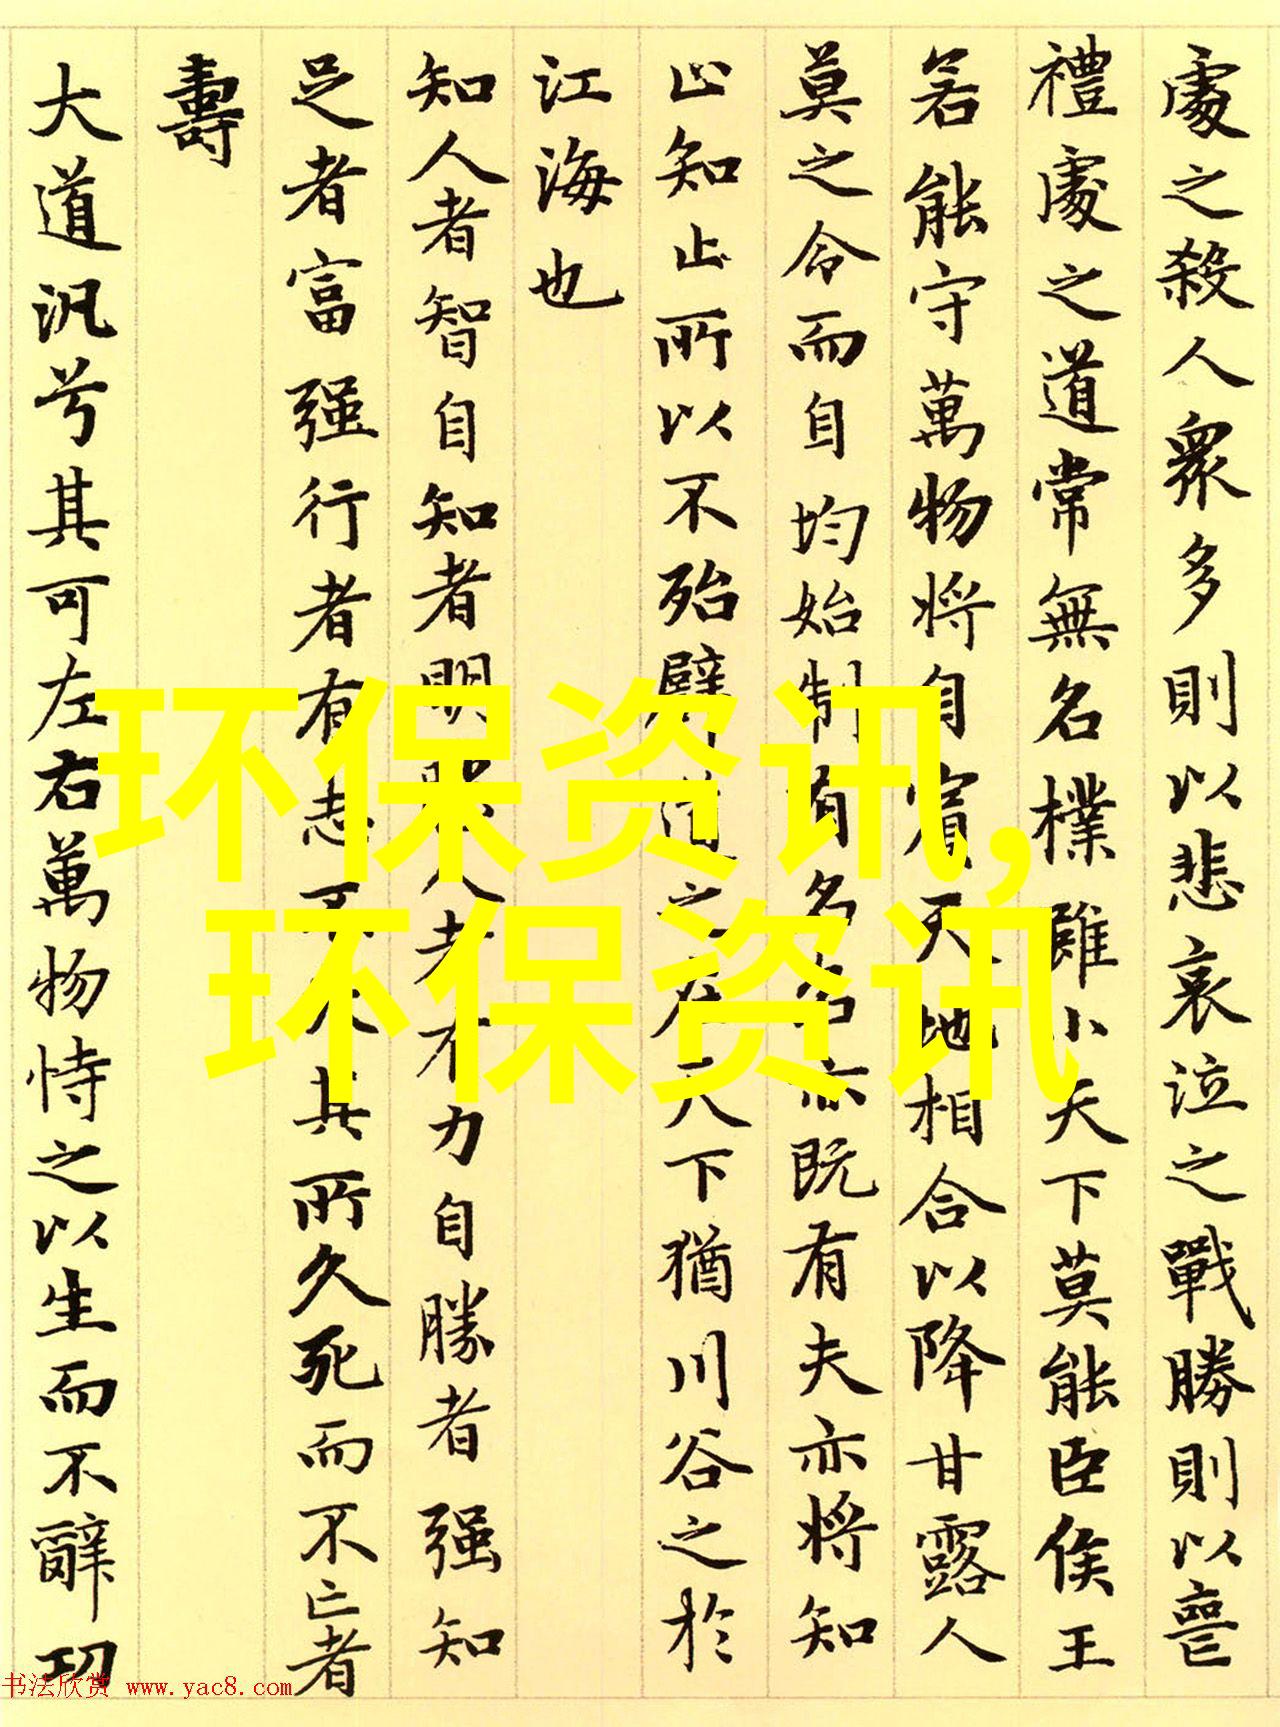 處之殺人衆多則以悲哀泣之戰勝則以喪
禮處之道常無名樸雖小天下莫能臣侯王
若能守萬物將自賓天地相合以降甘露人
莫之令而自均始制有名名亦既有夫亦將知
止知止所以不殆譬道之在天下猶川谷之於
江海也
知人者智自知者明勝人者有力自勝者强知
足者富强行者有志不失其所久死而不亡者
壽
大道汎兮其可左右萬物恃之以生而不辭功
环保资讯,
环保资讯
书法欣赏 www.yac8.com